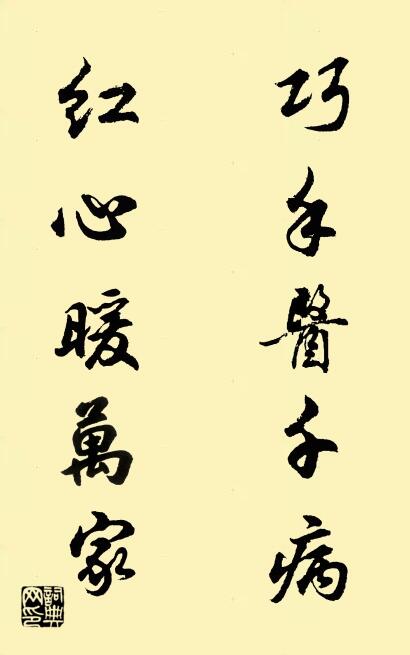 巧手醫千病
红心暖萬家
詞典網印